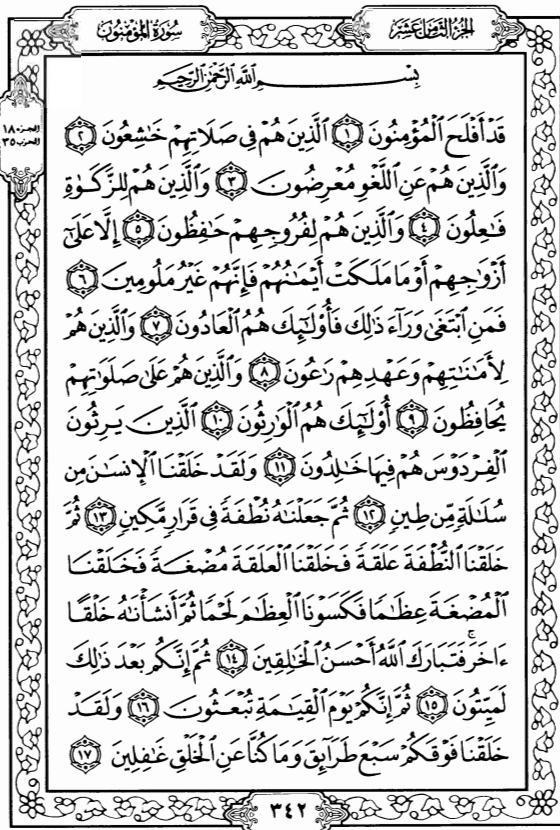 الجزء الثامن عشر
سورة المؤمنون
الجزء ١٨
الحزب ٣٥
بِسْمِ اللَّهِ الرَّحْمَٰنِ الرَّحِيمِ
قَدْ أَفْلَحَ الْمُؤْمِنُونَ ١ الَّذِينَ هُمْ فِي صَلَاتِهِمْ خَاشِعُونَ ٢
وَالَّذِينَ هُمْ عَنِ اللَّغْوِ مُعْرِضُونَ ٣ وَالَّذِينَ هُمْ لِلزَّكَوٰةِ
فَاعِلُونَ ٤ وَالَّذِينَ هُمْ لِفُرُوجِهِمْ حَافِظُونَ ٥ إِلَّا عَلَىٰ
أَزْوَاجِهِمْ أَوْ مَا مَلَكَتْ أَيْمَانُهُمْ فَإِنَّهُمْ غَيْرُ مَلُومِينَ ٦
فَمَنِ ابْتَغَىٰ وَرَآءَ ذَٰلِكَ فَأُولَٰئِكَ هُمُ الْعَادُونَ ٧ وَالَّذِينَ هُمْ
لِأَمَانَاتِهِمْ وَعَهْدِهِمْ رَاعُونَ ٨ وَالَّذِينَ هُمْ عَلَىٰ صَلَوَاتِهِمْ
يُحَافِظُونَ ٩ أُولَٰئِكَ هُمُ الْوَارِثُونَ ١٠ الَّذِينَ يَرِثُونَ
الْفِرْدَوْسَ هُمْ فِيهَا خَالِدُونَ ١١ وَلَقَدْ خَلَقْنَا الْإِنسَانَ مِن
سُلَالَةٍ مِّن طِينٍ ١٢ ثُمَّ جَعَلْنَاهُ نُطْفَةً فِي قَرَارٍ مَّكِينٍ ١٣ ثُمَّ
خَلَقْنَا النُّطْفَةَ عَلَقَةً فَخَلَقْنَا الْعَلَقَةَ مُضْغَةً فَخَلَقْنَا
الْمُضْغَةَ عِظَامًا فَكَسَوْنَا الْعِظَامَ لَحْمًا ثُمَّ أَنشَأْنَاهُ خَلْقًا
ءَاخَرَ ۚ فَتَبَارَكَ اللَّهُ أَحْسَنُ الْخَالِقِينَ ١٤ ثُمَّ إِنَّكُم بَعْدَ ذَٰلِكَ
لَمَيِّتُونَ ١٥ ثُمَّ إِنَّكُمْ يَوْمَ الْقِيَامَةِ تُبْعَثُونَ ١٦ وَلَقَدْ
خَلَقْنَا فَوْقَكُمْ سَبْعَ طَرَآئِقَ وَمَا كُنَّا عَنِ الْخَلْقِ غَافِلِينَ ١٧
٣٤٢